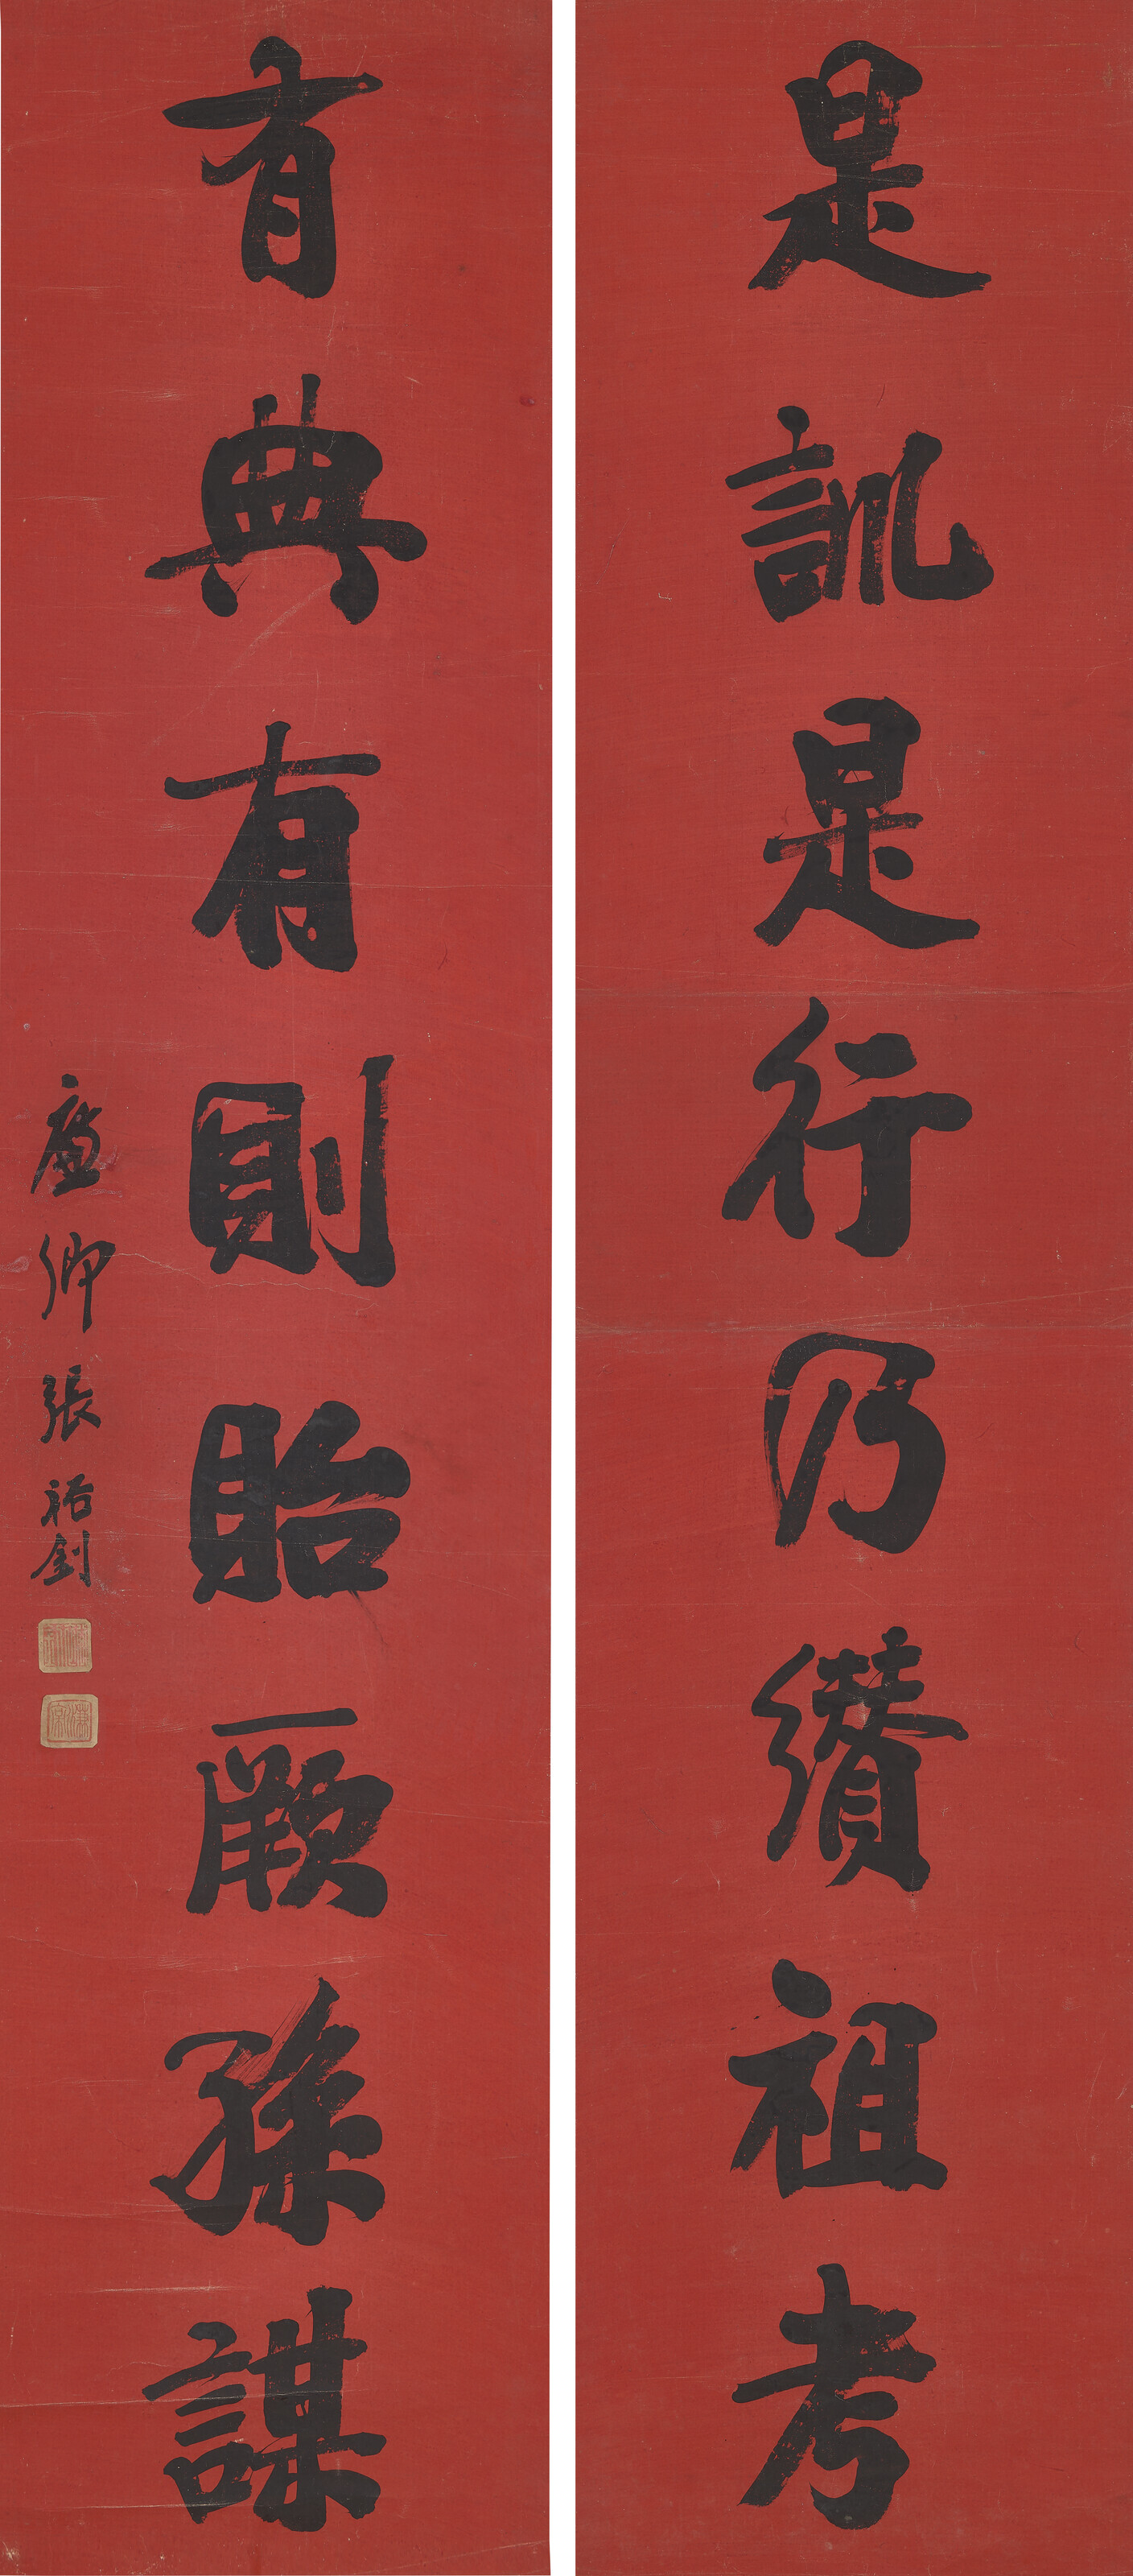 是訓是行乃纘祖考
有典有則貽厥孫謀
廉卿張裕釗